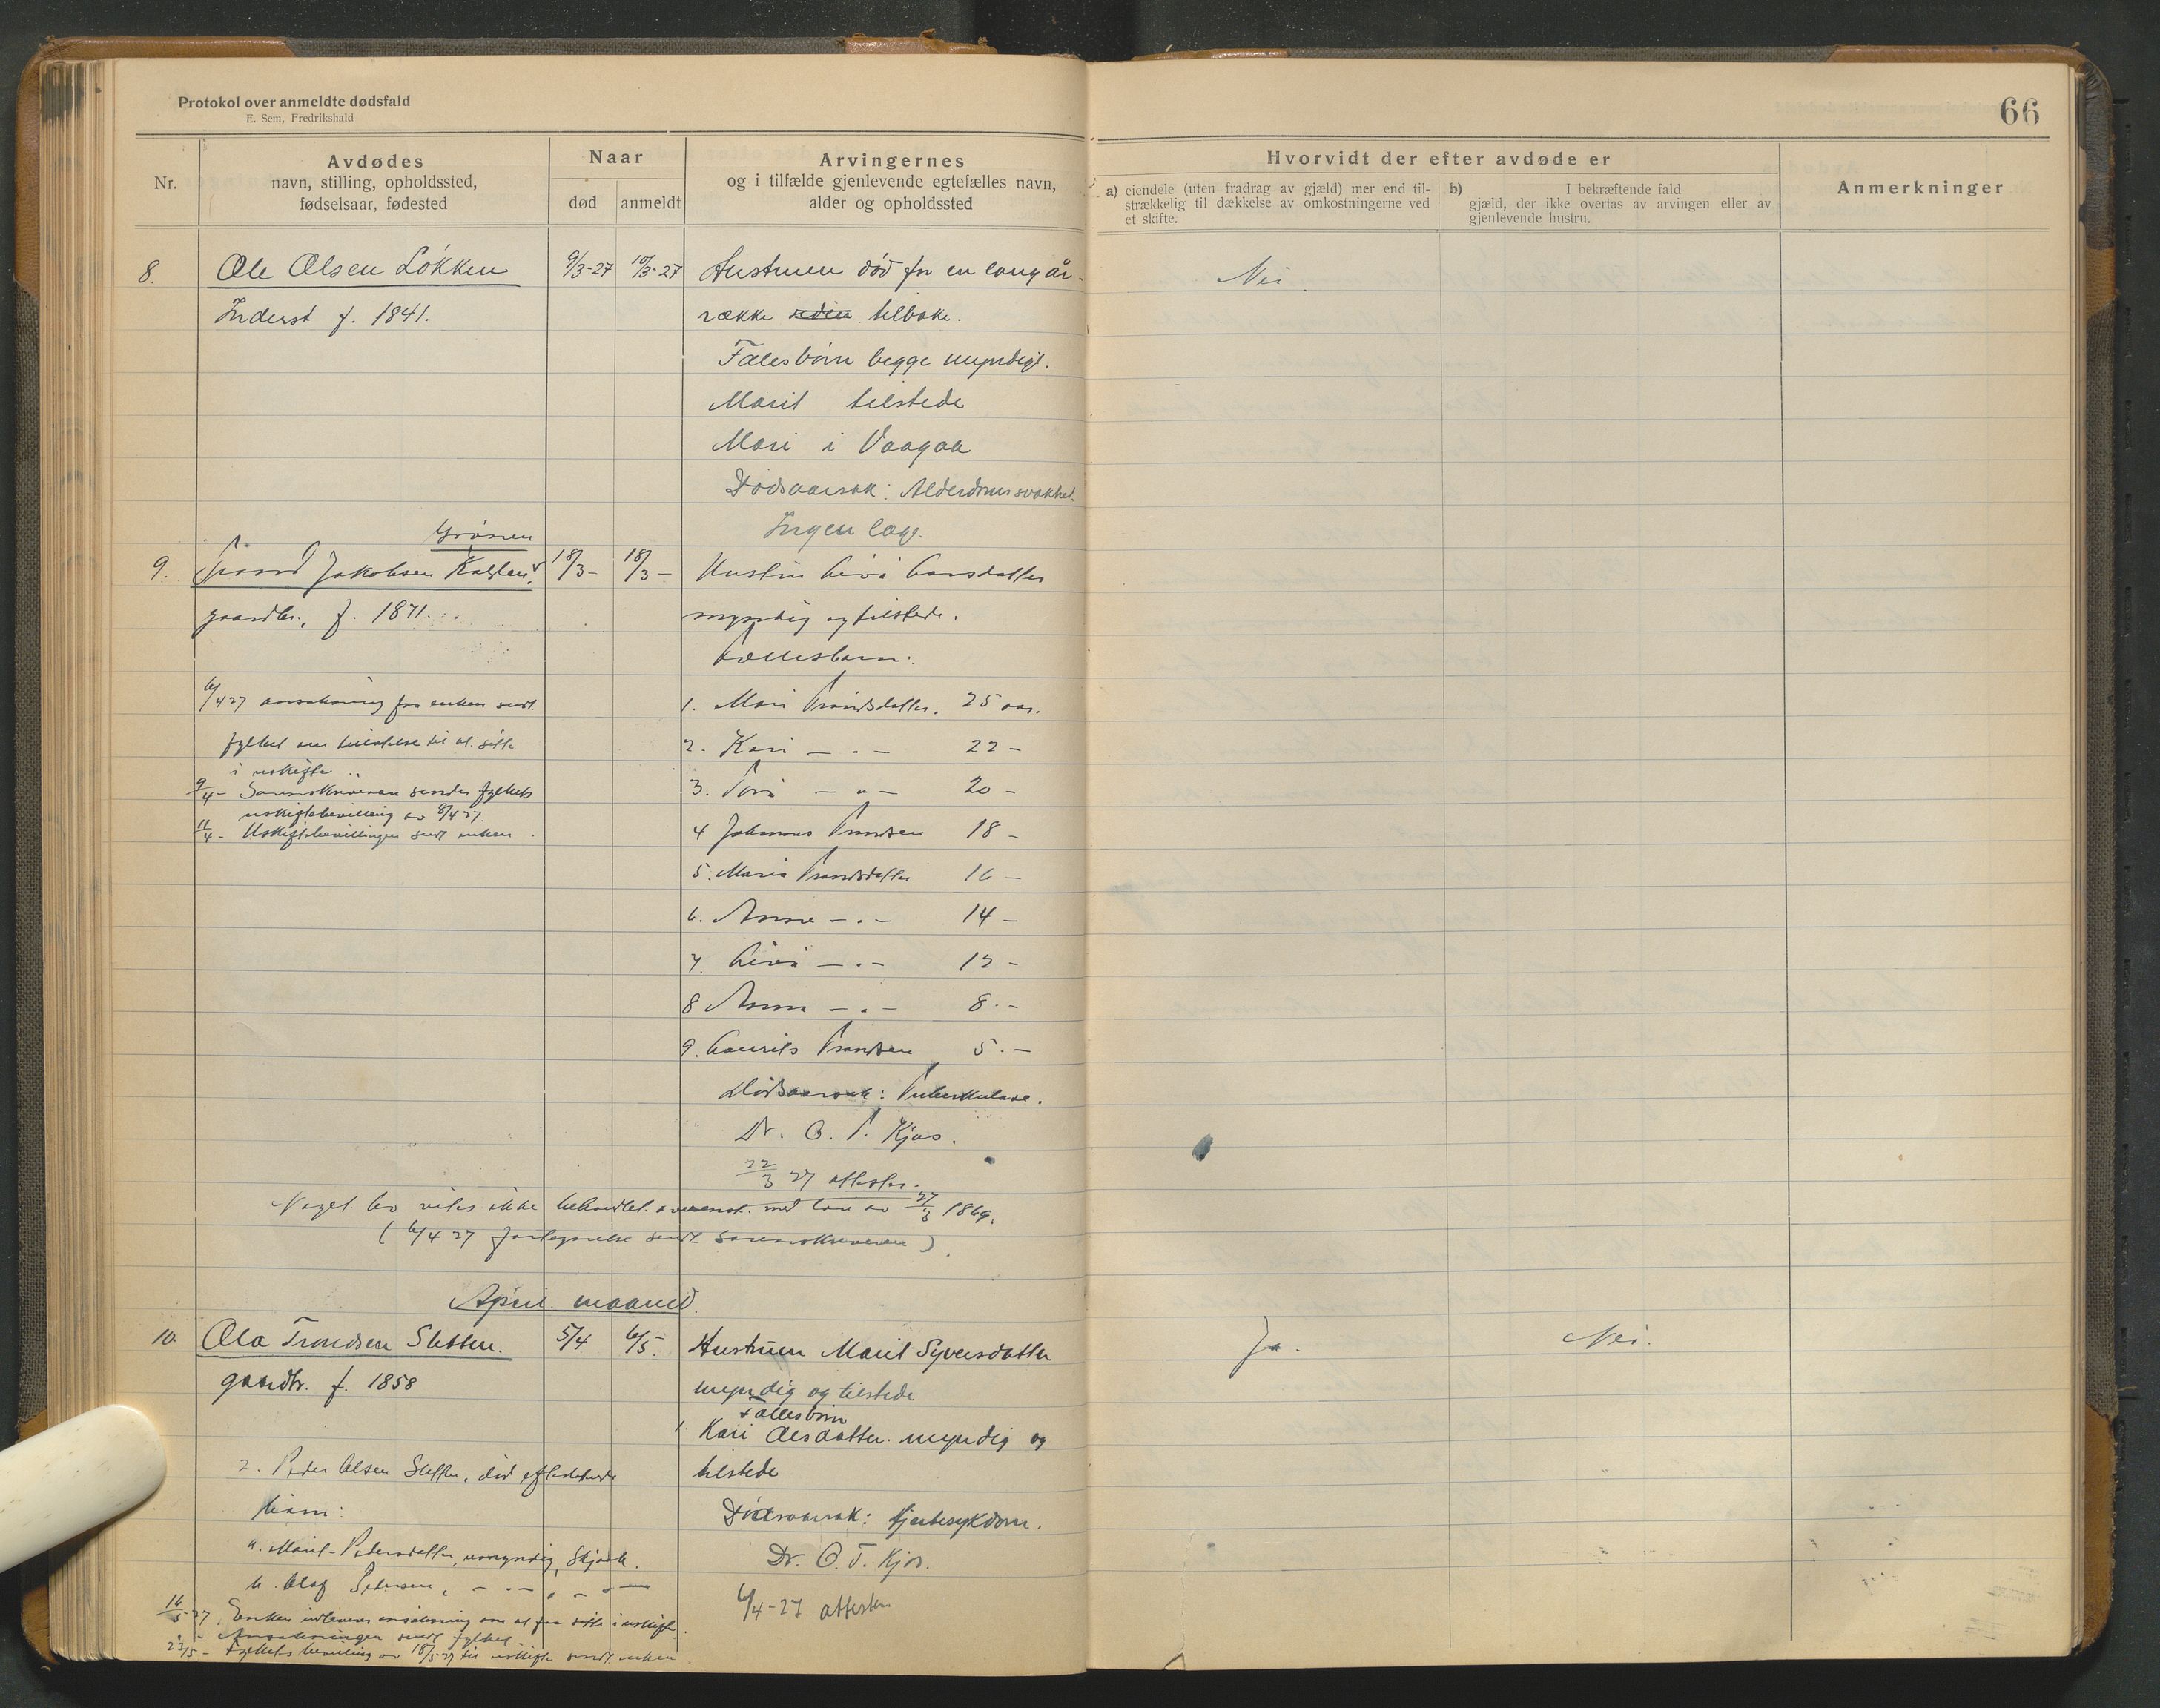 Protokol over anmeldte dødsfald
E. Sem, Fredrikshald
66
Nr.
Avdødes
navn, stilling, opholdssted,
fødselsaar, fødested
Naar
død
anmeldt
Arvingernes
og i tilfælde gjenlevende egtefælles navn,
alder og opholdssted
Hvorvidt der efter avdøde er
a) eiendele (uten fradrag av gjæld) mer end til-
strækkelig til dækkelse av omkostningerne ved
et skifte.
b) I bekræftende fald
gjæld, der ikke overtas av arvingen eller av
gjenlevende hustru.
Anmerkninger
8. Ole Olsen Løkken 9/3-27 10/3-27 Hustruen død for en lang år-
Nei
Inderst f. 1841. række siden tilbake.
Fælesbørn begge myndige.
Marit tilstede
Mari i Vaagaa
Dødsaarsak: Alderdomssvakhet.
Ingen læge.
9. Jakobsen 18/3- 18/3- Hustru Livi Larsdatter
gaardbr., f. 1871. myndig og tilstede.
Fællesbarn:
6/4 27 ansøkning fra enken sendt
fylket om tilladelse til at sitte
i uskifte
9/4- Sorenskriveren sender fylkets
uskiftebevilling av 8/4 27.
11/4- Uskiftebevillingen sendt enken.
1. Mari Trondsdatter. 25 aar.
2. Kari - " - 22 -
3. Tora - " - 20 -
4 Johannes Trondsen 18 -
5. Maria Trondsdatter 16 -
6. Anne - " - 14 -
7. Livi - " - 12 -
8 Anna - " - 8. -
9. Laurits Trondsen 5. -
Dødsaarsak: Tuberkulose.
Dr. O. T. Kjos.
22/3 27 attester.
Noget bo vites ikke behandlet overenst. med lov av 27/3 1869.
(6/4 27 fortegnelse sendt Sorenskriveren)
April maaned.
10. Ola Trondsen Sletten. 5/4 6/5. Hustruen Marit Syversdatter
Ja. Nei.
gaardbr. f. 1858 myndig og tilstede
Fællesbørn
1. Kari Olsdatter. myndig og
tilstede
2. Peder Olsen Sletten, død efterlatende
barn:
a. Marit Pedersdatter, umyndig, Skjaak.
b. Olaf Pedersen, - " - " - " -
Dødsaarsak: hjertesykdom.
Dr. O. T. Kjos.
6/4-27 attester
16/5-27. Enken indleverer ansøkning om at faa sitte i uskifte.
" - Ansøkningen sendt fylket.
23/5- Fylkets bevilling av 18/5-27 til uskifte sendt enken